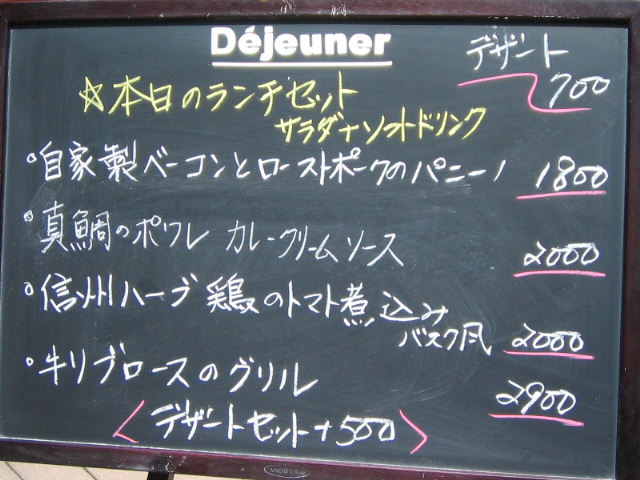 Déjeuner
デザート
700
☆本日のランチセット
サラダ+ソフトドリンク
°自家製ベーコンとローストポークのパニーノ 1800
°真鯛のポワレ カレークリームソース 2000
°信州ハーブ鶏のトマト煮込み
バスク風 2000
°牛リブロースのグリル 2900
〈デザートセット+500〉